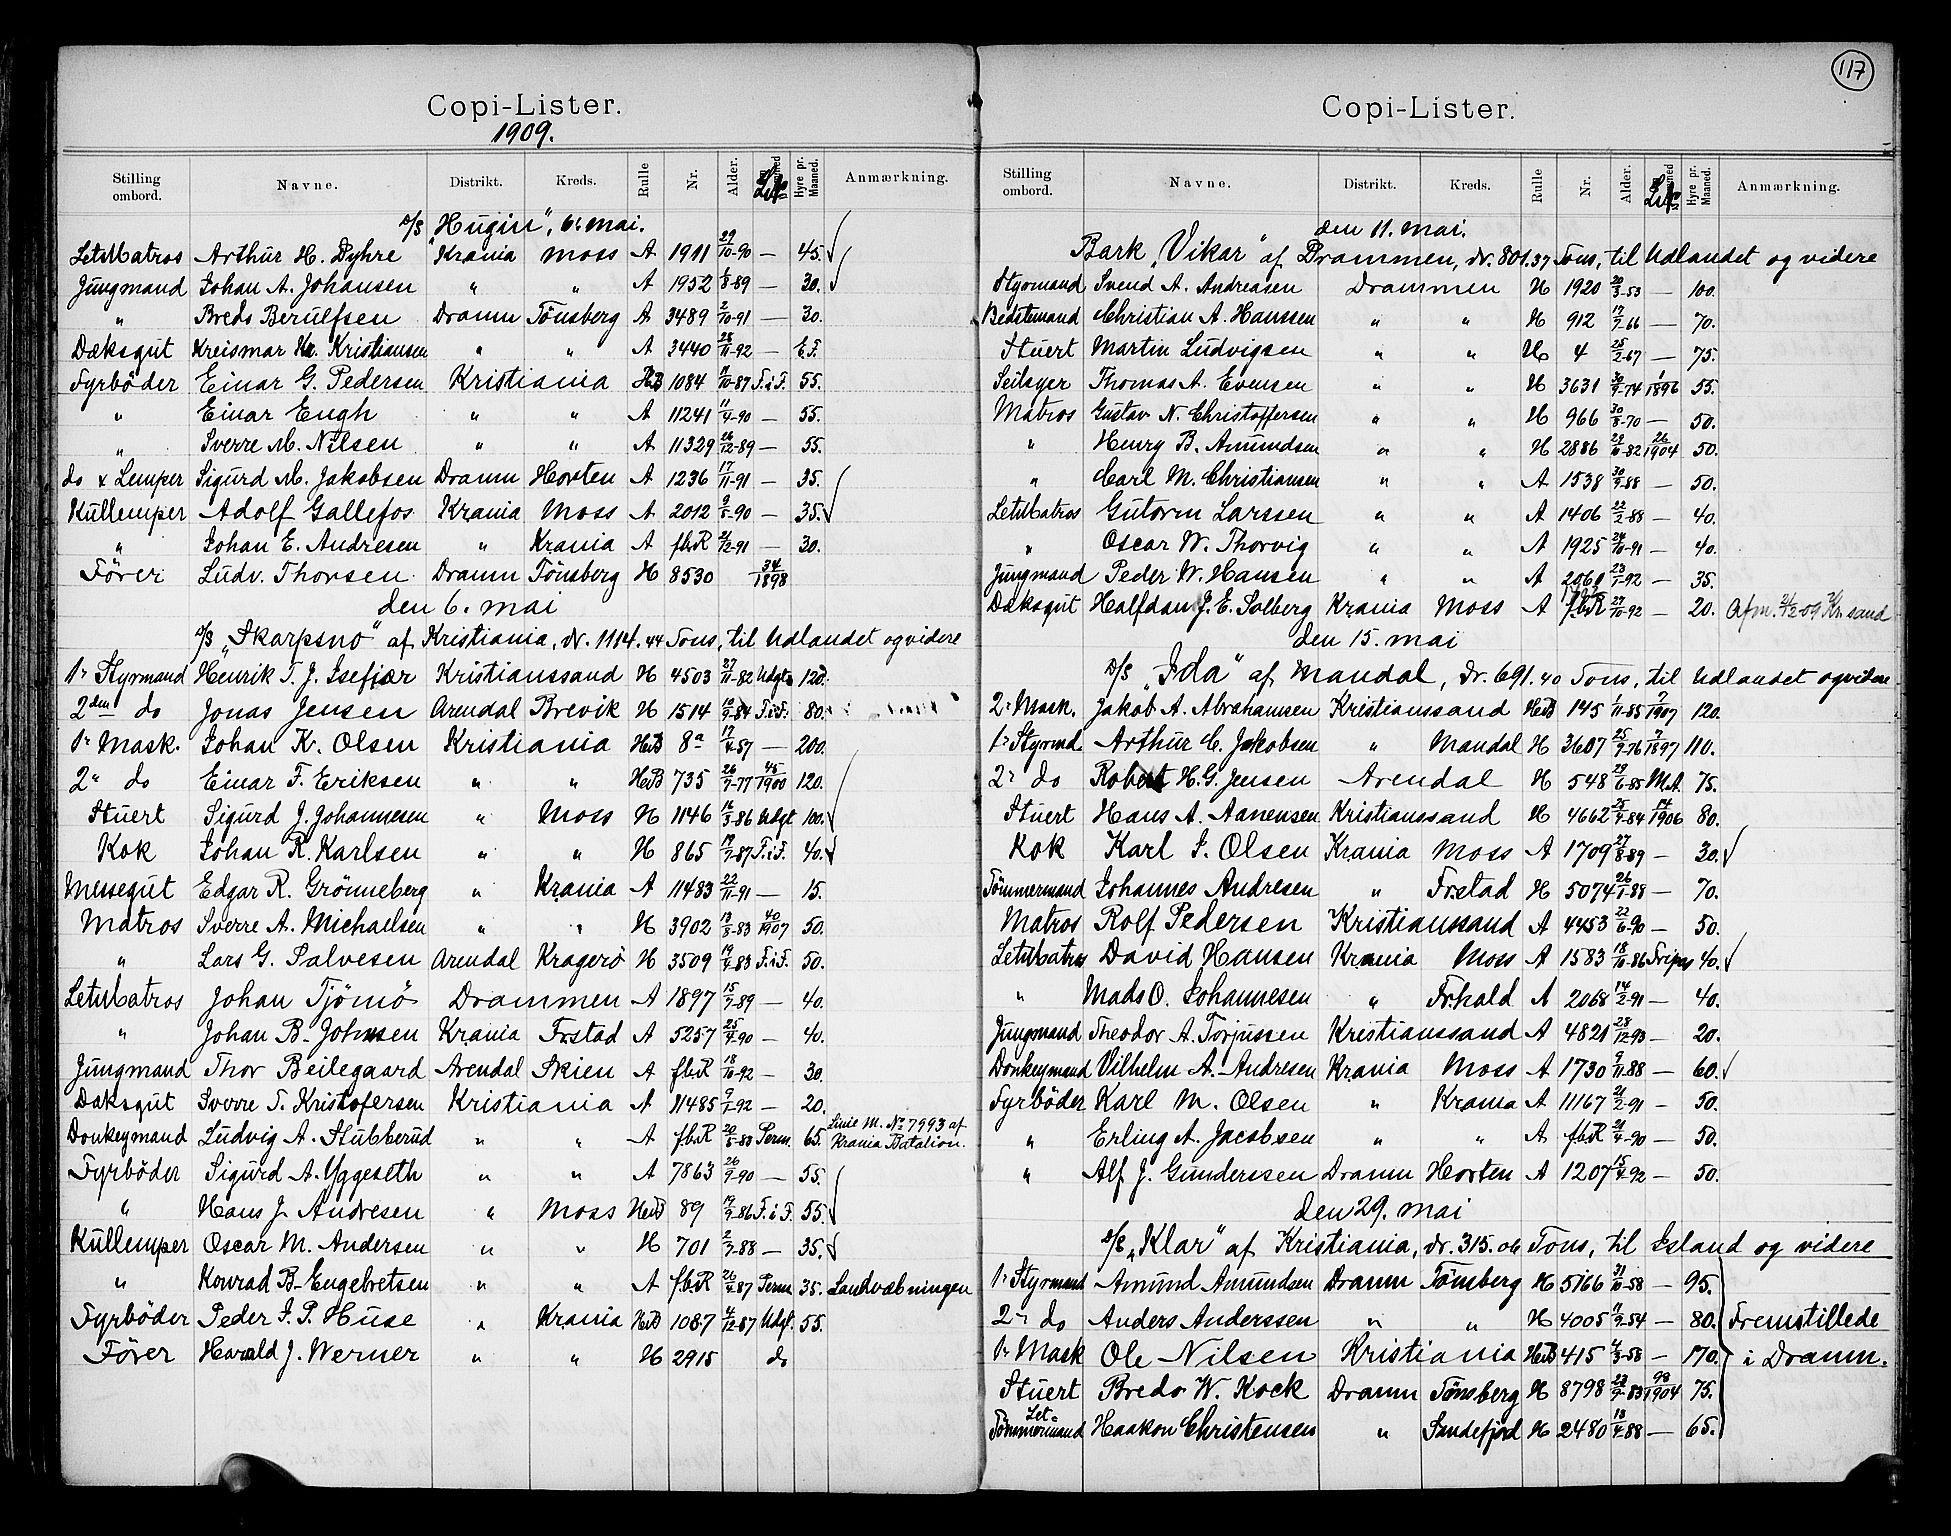 117
Copi-Lister.
1909.
Stilling ombord. Navne. Distrikt. Kreds. Rulle Nr. Alder. Hyre pr. Maaned. Anmærkning.
D/S „Hugin", 6. mai.
LetMatros Arthur H. Dyhre Krania Moss A 1911 29/10-90 — 45.
Jungmand Johan A. Johansen " " A 1952 6/8-89 — 30.
" Breds Berulfsen Dramn Tönsberg A 3489 2/10-91 — 30.
Dæksgut Kristiansen " " A 3440 28/11-92 —
Fyrböder Einar G. Pedersen Kristiania HB 1084 11/10-87 F.i.F. 55.
" Einar Engh " " A 11241 11/4-90 — 55.
" Sverre M. Nilsen " " A 11329 26/12-89 — 55.
do & Lemper Sigurd M. Jakobsen Dramn Horten A 1236 17/11-91 — 35.
Kullemper Adolf Gallefos Krania Moss A 2012 9/5-90 — 35.
" Johan E. Andresen " Krania A fb.R 2/12-91 — 30.
Förer Ludv. Thorsen Dramn Tönsberg H 8530 34/1898
den 6. mai
D/S „Skarpsno" af Kristiania, dr. 1114.44 Tons, til Udlandet og videre
1ª Styrmand Henrik T. J. Isefjær Kristianssand H 4503 27/11-82 Udgt 120.
2den do Jonas Jensen Arendal Brevik H 1514 10/9-84 F.i.F. 80.
1ª Mask. Johan K. Olsen Kristiania HB 8ª 17/4-57 — 200.
2ª do Einar F. Eriksen " " HB 735 26/7-77 45/1900 120.
Stuert Sigurd J. Johannesen " Moss H 1146 16/3-86 Udgt 100.
Kok Johan R. Karlsen " " H 865 19/7-87 F.i.F. 40.
Messegut Edgar R. Grönneberg " Krania A 11483 22/11-91 — 15.
Matros Sverre A. Michaelsen " " H 3902 13/5-83 40/1907 50.
" Lars G. Salvesen Arendal Kragerö H 3509 19/4-83 F.i.F. 50.
LetMatros Johan Tjömö Drammen A 1897 15/7-89 — 40.
" Johan B. Johnsen Krania Fr.stad A 5257 25/4-90 — 40.
Jungmand Thor Beilegaard Arendal Skien A fb.R 18/10-92 — 30.
Dæksgut Sverre T. Kristofersen Kristiania A 11485 9/1-92 — 20.
Donkeymand Ludvig A. Stubberud " " A fb.R 20/5-83 Perm. 65. Linie M. No 7993 af Krania Batalion.
Fyrböder Sigurd A. Yggeseth " " A 7863 26/9-90 — 55.
" Hans J. Andresen " Moss HB 89 19/9-86 F.i.F. 55.
Kullemper Oscar M. Andersen " " H 701 2/7-88 — 35.
" Konrad B. Engebretsen " " A fb.R 26/4-87 Perm. 35. Landvæbningen
Fyrböder Peder J. P. Huse " Krania HB 1087 4/12-87 Udgt. 55.
Förer Harald J. Werner " " H 2915 do
Copi-Lister.
Stilling ombord. Navne. Distrikt. Kreds. Rulle Nr. Alder. Hyre pr. Maaned. Anmærkning.
den 11. mai.
Bark „Vikar" af Drammen, dr. 801.37 Tons, til Udlandet og videre
Styrmand Svend A. Andreasen Drammen H 1920 20/3-53 — 100.
Bedstemand Christian A. Hanssen " " H 912 17/7-66 — 70.
Stuert Martin Ludvigsen " " H 4 25/2-67 — 75.
Seilsyer Thomas A. Evensen " " H 3631 30/9-74 1/1896 55.
Matros Gustav N. Christoffersen " " H 966 30/8-70 — 50.
" Henry B. Amundsen " " H 2886 29/10-82 26/1904 50.
" Carl M. Christiansen " " A 1538 30/9-88 — 50.
LetMatros Gutorm Larssen " " A 1406 22/2-88 — 40.
" Oscar W. Thorvig " " A 1925 24/10-91 — 40.
Jungmand Peder W. Hansen " " A 2061 23/1-92 — 35.
Dæksgut Halfdan J. E. Solberg Krania Moss A fb.R 27/10-92 — 20. Afm. 2/2 09 Kr.sand
den 15. mai
D/S „Ida" af Mandal, dr. 691.40 Tons, til Udlandet og videre
2ª Mask. Jakob A. Abrahamsen Kristianssand HB 145 1/11-85 7/1907 120.
1ª Styrmd Arthur C. Jakobsen " Mandal H 3607 25/9-76 7/1897 110.
2ª do Robert H. G. Jensen Arendal H 548 29/6-85 M.A. 75.
Stuert Hans A. Aanensen Kristianssand H 4662 25/9-84 14/1906 80.
Kok Karl S. Olsen Krania Moss A 1709 27/8-89 — 30.
Tömmermand Johannes Andresen " Fr.stad H 5074 26/1-88 — 70.
Matros Rolf Pedersen Kristianssand A 4453 22/6-90 — 50.
LetMatros David Hansen Krania Moss A 1583 18/10-86 Fripas 40.
" Mads O. Johannesen " Fr.hald A 2068 14/2-91 — 40.
Jungmand Theodor A. Torjussen Kristianssand A 4821 28/12-93 — 20.
Donkeymand Vilhelm A. Andresen Krania Moss A 1730 9/11-88 — 60.
Fyrböder Karl M. Olsen " Krania A 11167 21/2-91 — 50.
" Erling A. Jacobsen " " A fb.R 21/4-90 — 50.
" Alf J. Gunderssen Dramn Horten A 1207 15/4-92 — 50.
den 29. mai
S/S „Klar" af Kristiania, dr. 315.06 Tons, til Island og videre
1ª Styrmand Amund Amundsen Dramn Tönsberg H 5166 31/10-58 — 95.
2ª do Anders Anderssen " " H 4005 11/9-54 — 80. Fremstillede
1ª Mask Ole Nilsen Kristiania HB 415 4/3-58 — 170. i Dramn.
Stuert Bredo W. Kock Dramn Tönsberg H 8798 23/9-83 93/1904 75.
Let-Tömmermand Haakon Christensen " Sandefjord H 2480 13/4-88 — 65.